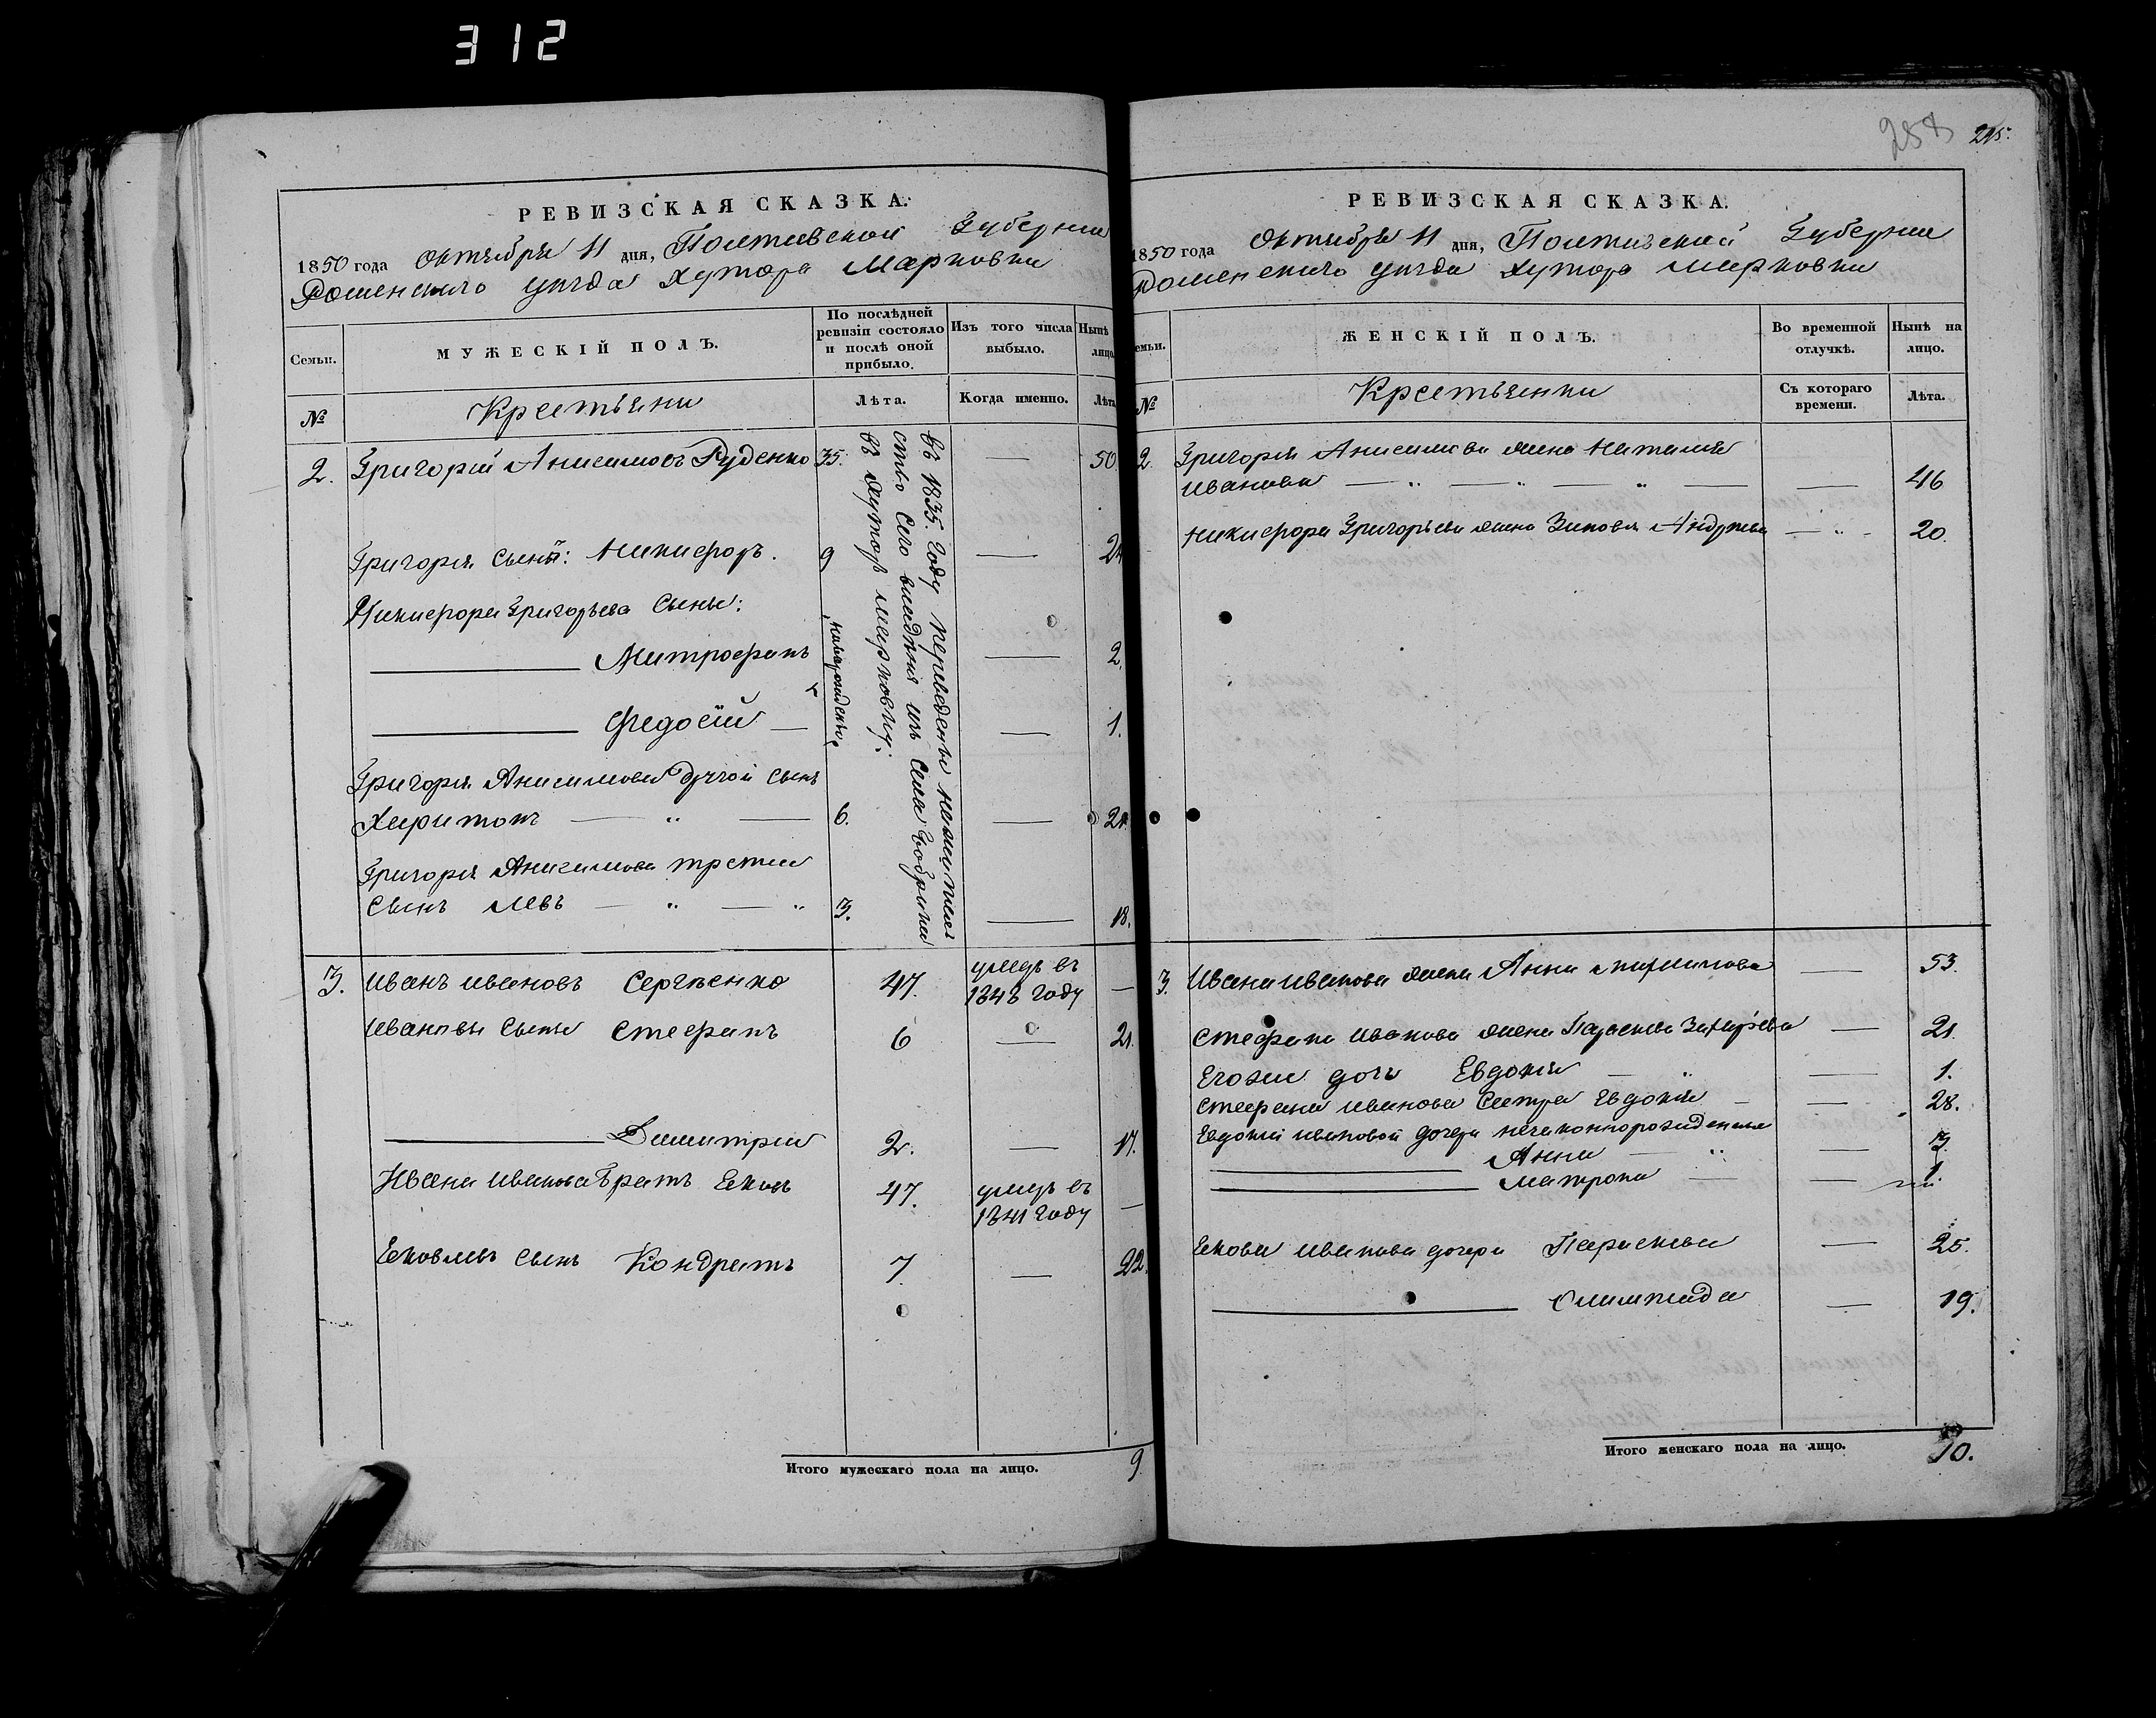 312
РЕВИЗСКАЯ СКАЗКА.
1850 года Октября 11 дня, Полтавской Губернии
Роменскаго уѣзда Хутора Марковки
Семьи.
МУЖЕСКІЙ ПОЛЪ.
По послѣдней ревизіи состояло и послѣ оной прибыло.
Изъ того числа выбыло.
Нынѣ лицо
№
Крестьяни
Лѣта.
Когда именно.
Лѣта
2. Григорій Анисимовъ Руденко 35. — 50
Григорія сынъ: Никифоръ. 9 —
Никифора Григорьева Сыны:
Митрофанъ новорожденъ — 2.
Федосій — — 1.
Григорія Анисимова другой сынъ
Харитонъ — 6. — 21.
Григорія Анисимова третий
Сынъ Левъ — 3. — 18.
въ 1835. году переведены
ство сего имѣнія изъ села Бобрика
въ Хуторъ Марковку.
3. Иванъ Ивановъ Сергѣенко 47. умеръ въ —
1848 году
Ивановы Сыны Стефанъ 6 — 21.
Димитрии 2. — 17.
Ивана Иванова Братъ Яковъ 47. умеръ въ —
1841 году
Яковлевъ Сынъ Кондратъ 7. — 22.
Итого мужескаго пола на лицо. 9
258 215.
РЕВИЗСКАЯ СКАЗКА.
1850 года Октября 11 дня, Полтавской Губернии
Роменскаго уѣзда Хутора Марковки
емьи.
ЖЕНСКІЙ ПОЛЪ.
Во временной отлучкѣ.
Нынѣ на лицо.
№
Крестьянки
Съ котораго времени.
Лѣта.
2. Григорія Анисимова жена Наталия
Иванова — — 46
Никифора Григорьева жена Зиновия Андреева — 20.
3. Ивана Иванова жена Анна — 53.
Стефана Иванова жена Параскева Захарьева — 21.
Егоже дочь Евдокия — 1.
Стефана Иванова Сестра Евдокия — 28.
Евдокии Ивановой дочери незаконнорожденные
Анна — 3.
Матрона — 1.
Якова Иванова дочери Параскева — 25.
Олимпиада — 19.
Итого женскаго пола на лицо. 10.